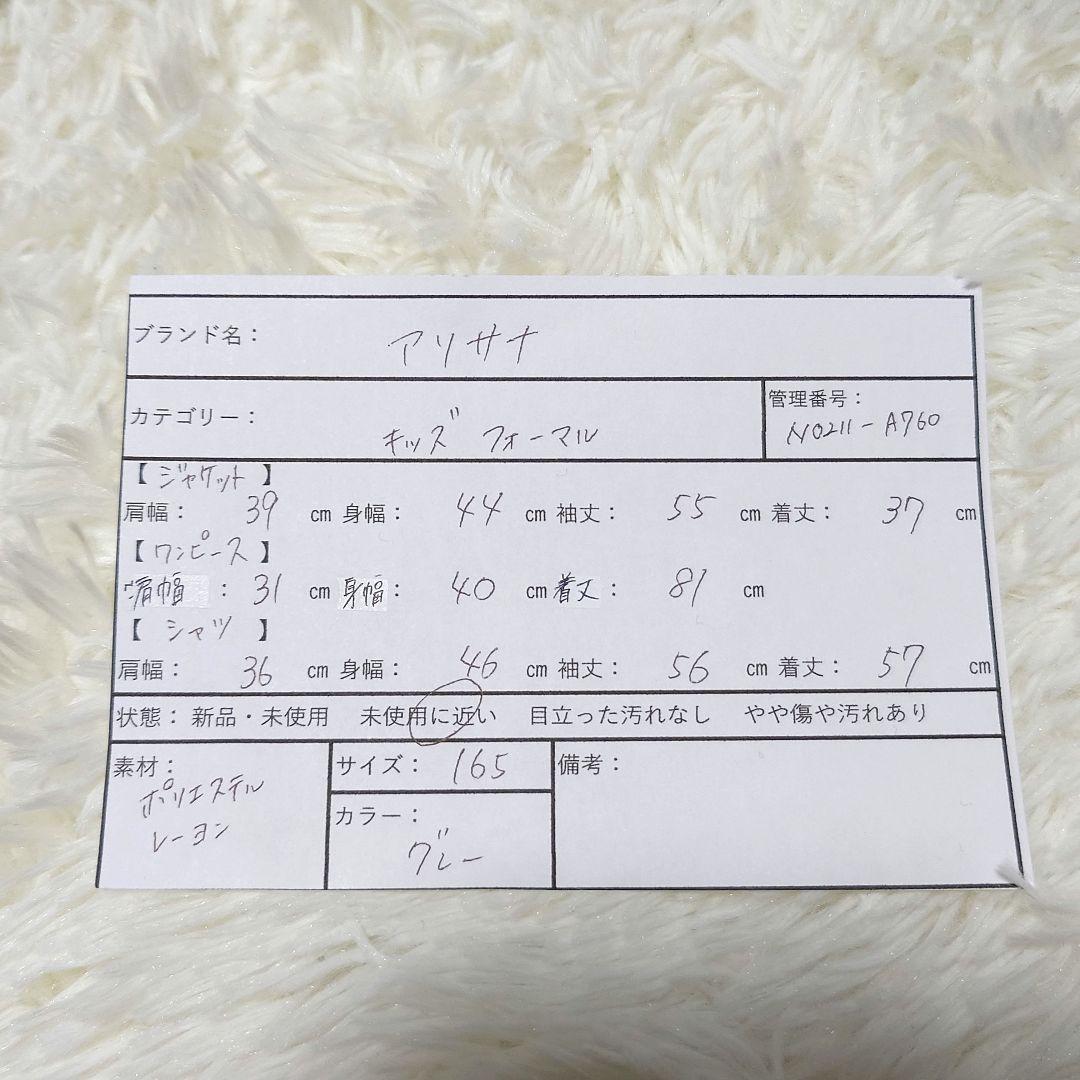 ブランド名： アリサナ
カテゴリー： キッズ フォーマル
管理番号：
N0211-A760
【 ジャケット 】
肩幅： 39 cm 身幅： 44 cm 袖丈： 55 cm 着丈： 37 cm
【 ワンピース 】
肩幅 ： 31 cm 身幅： 40 cm 着丈： 81 cm
【 シャツ 】
肩幅： 36 cm 身幅： 46 cm 袖丈： 56 cm 着丈： 57 cm
状態： 新品・未使用 未使用に近い 目立った汚れなし やや傷や汚れあり
素材：
ポリエステル
レーヨン
サイズ： 165
カラー：
グレー
備考：